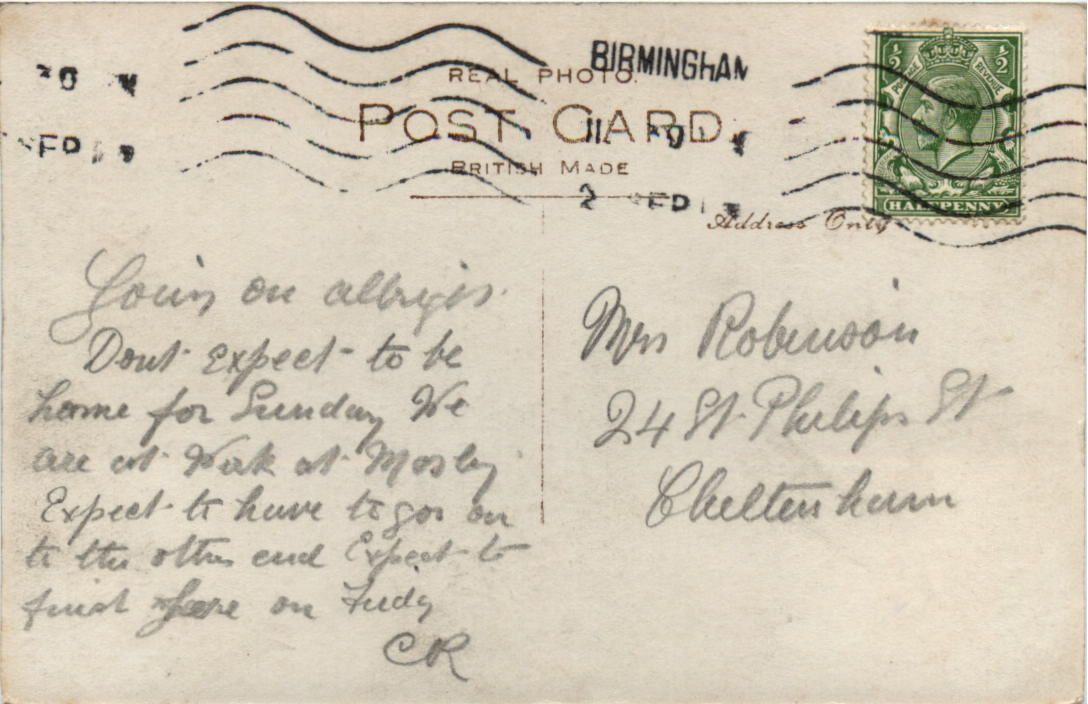 BIRMINGHAM
REAL PHOTO.
POST CARD
BRITISH MADE
11
2
Address Only
½ ½
POSTAGE REVENUE
HALFPENNY
Goin on
Dont Expect to be
home for Sunday We
are at Work at Mosley
Expect to have to go on
to the other end Expect to
finish here on Friday
CR
Mrs Robinson
24 St Philips St
Cheltenham